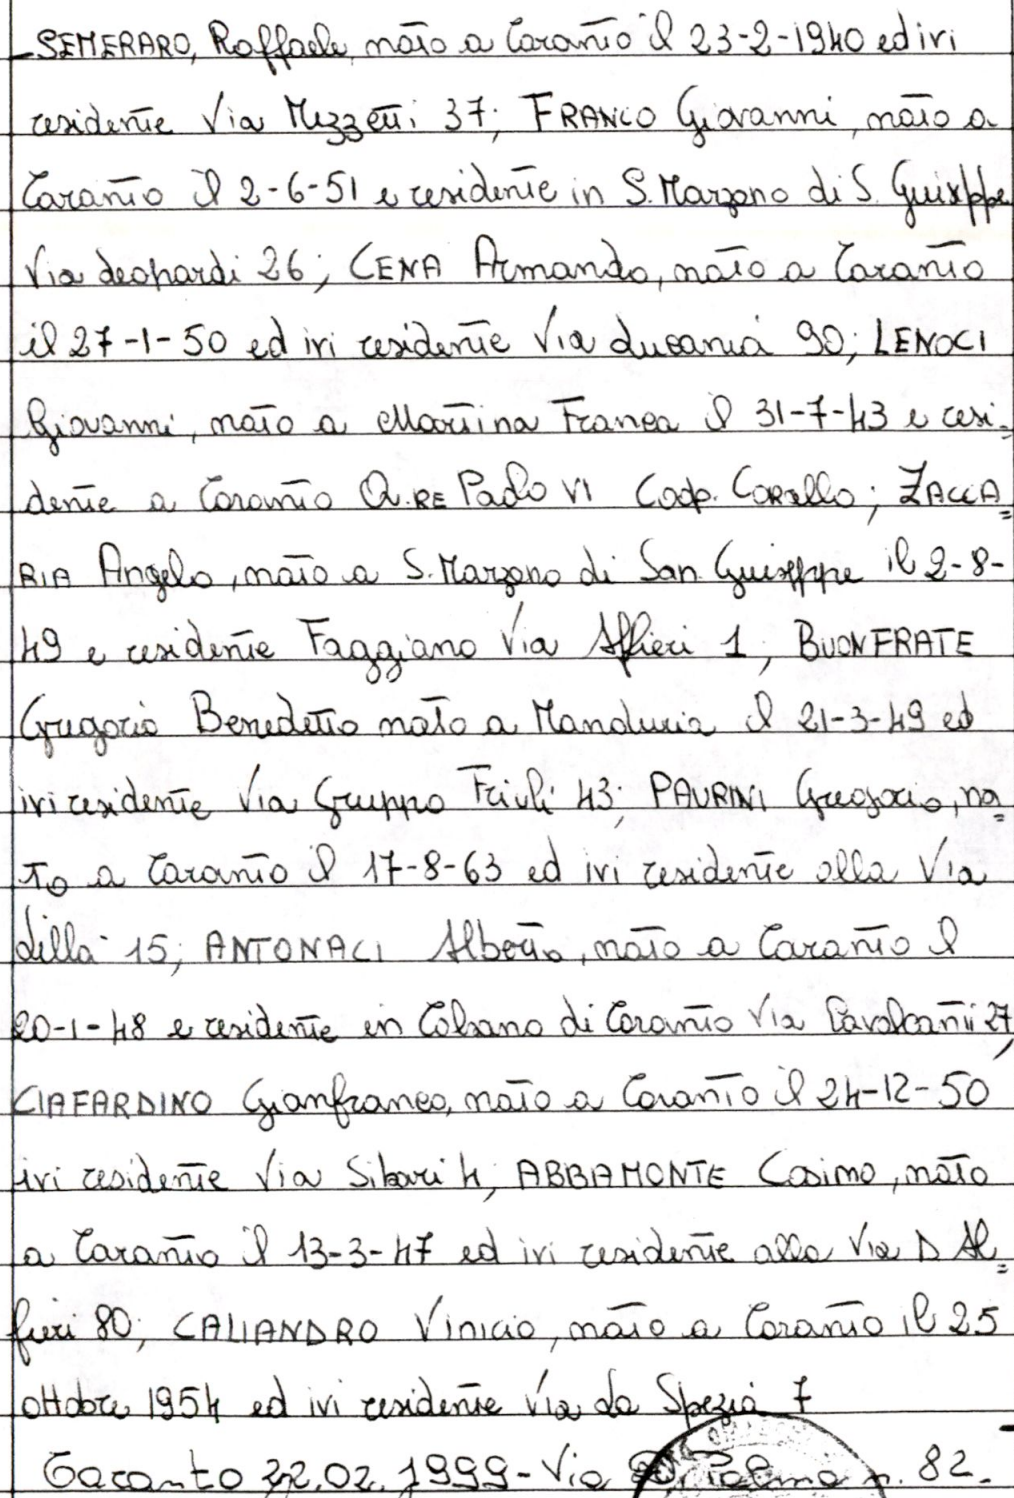 SEMERARO, Raffaele nato a Taranto il 23-2-1940 ed ivi
residente Via Mezzetti 37; FRANCO Giovanni, nato a
Taranto il 2-6-51 e residente in S. Marzano di S. Guiseppe
Via Leopardi 26; CENA Armando, nato a Taranto
il 27-1-50 ed ivi residente Via Lucania 90; LENOCI
Giovanni, nato a Martina Franca il 31-7-43 e resi-
dente a Taranto Q.RE Paolo VI Coop. Corallo; ZACCA=
RIA Angelo, nato a S. Marzano di San Guiseppe il 2-8-
49 e residente Faggiano Via Alfieri 1; BUONFRATE
Gregorio Benedetto nato a Manduria il 21-3-49 ed
ivi residente Via Gruppo Friuli 43; PAURINI Gregorio, na=
to a Taranto il 17-8-63 ed ivi residente alla Via
Lilla 15; ANTONACI Alberto, nato a Taranto il
20-1-48 e residente in Talsano di Taranto Via Cavalcanti 27,
CIAFARDINO Gianfranco, nato a Taranto il 24-12-50
ivi residente Via Sibari 4, ABBAMONTE Cosimo, nato
a Taranto il 13-3-47 ed ivi residente alla Via D Al=
fieri 80; CALIANDRO Vinicio, nato a Taranto il 25
ottobre 1954 ed ivi residente Via da Spezia 7
Taranto 22.02.1999 - Via Di Palma n. 82.